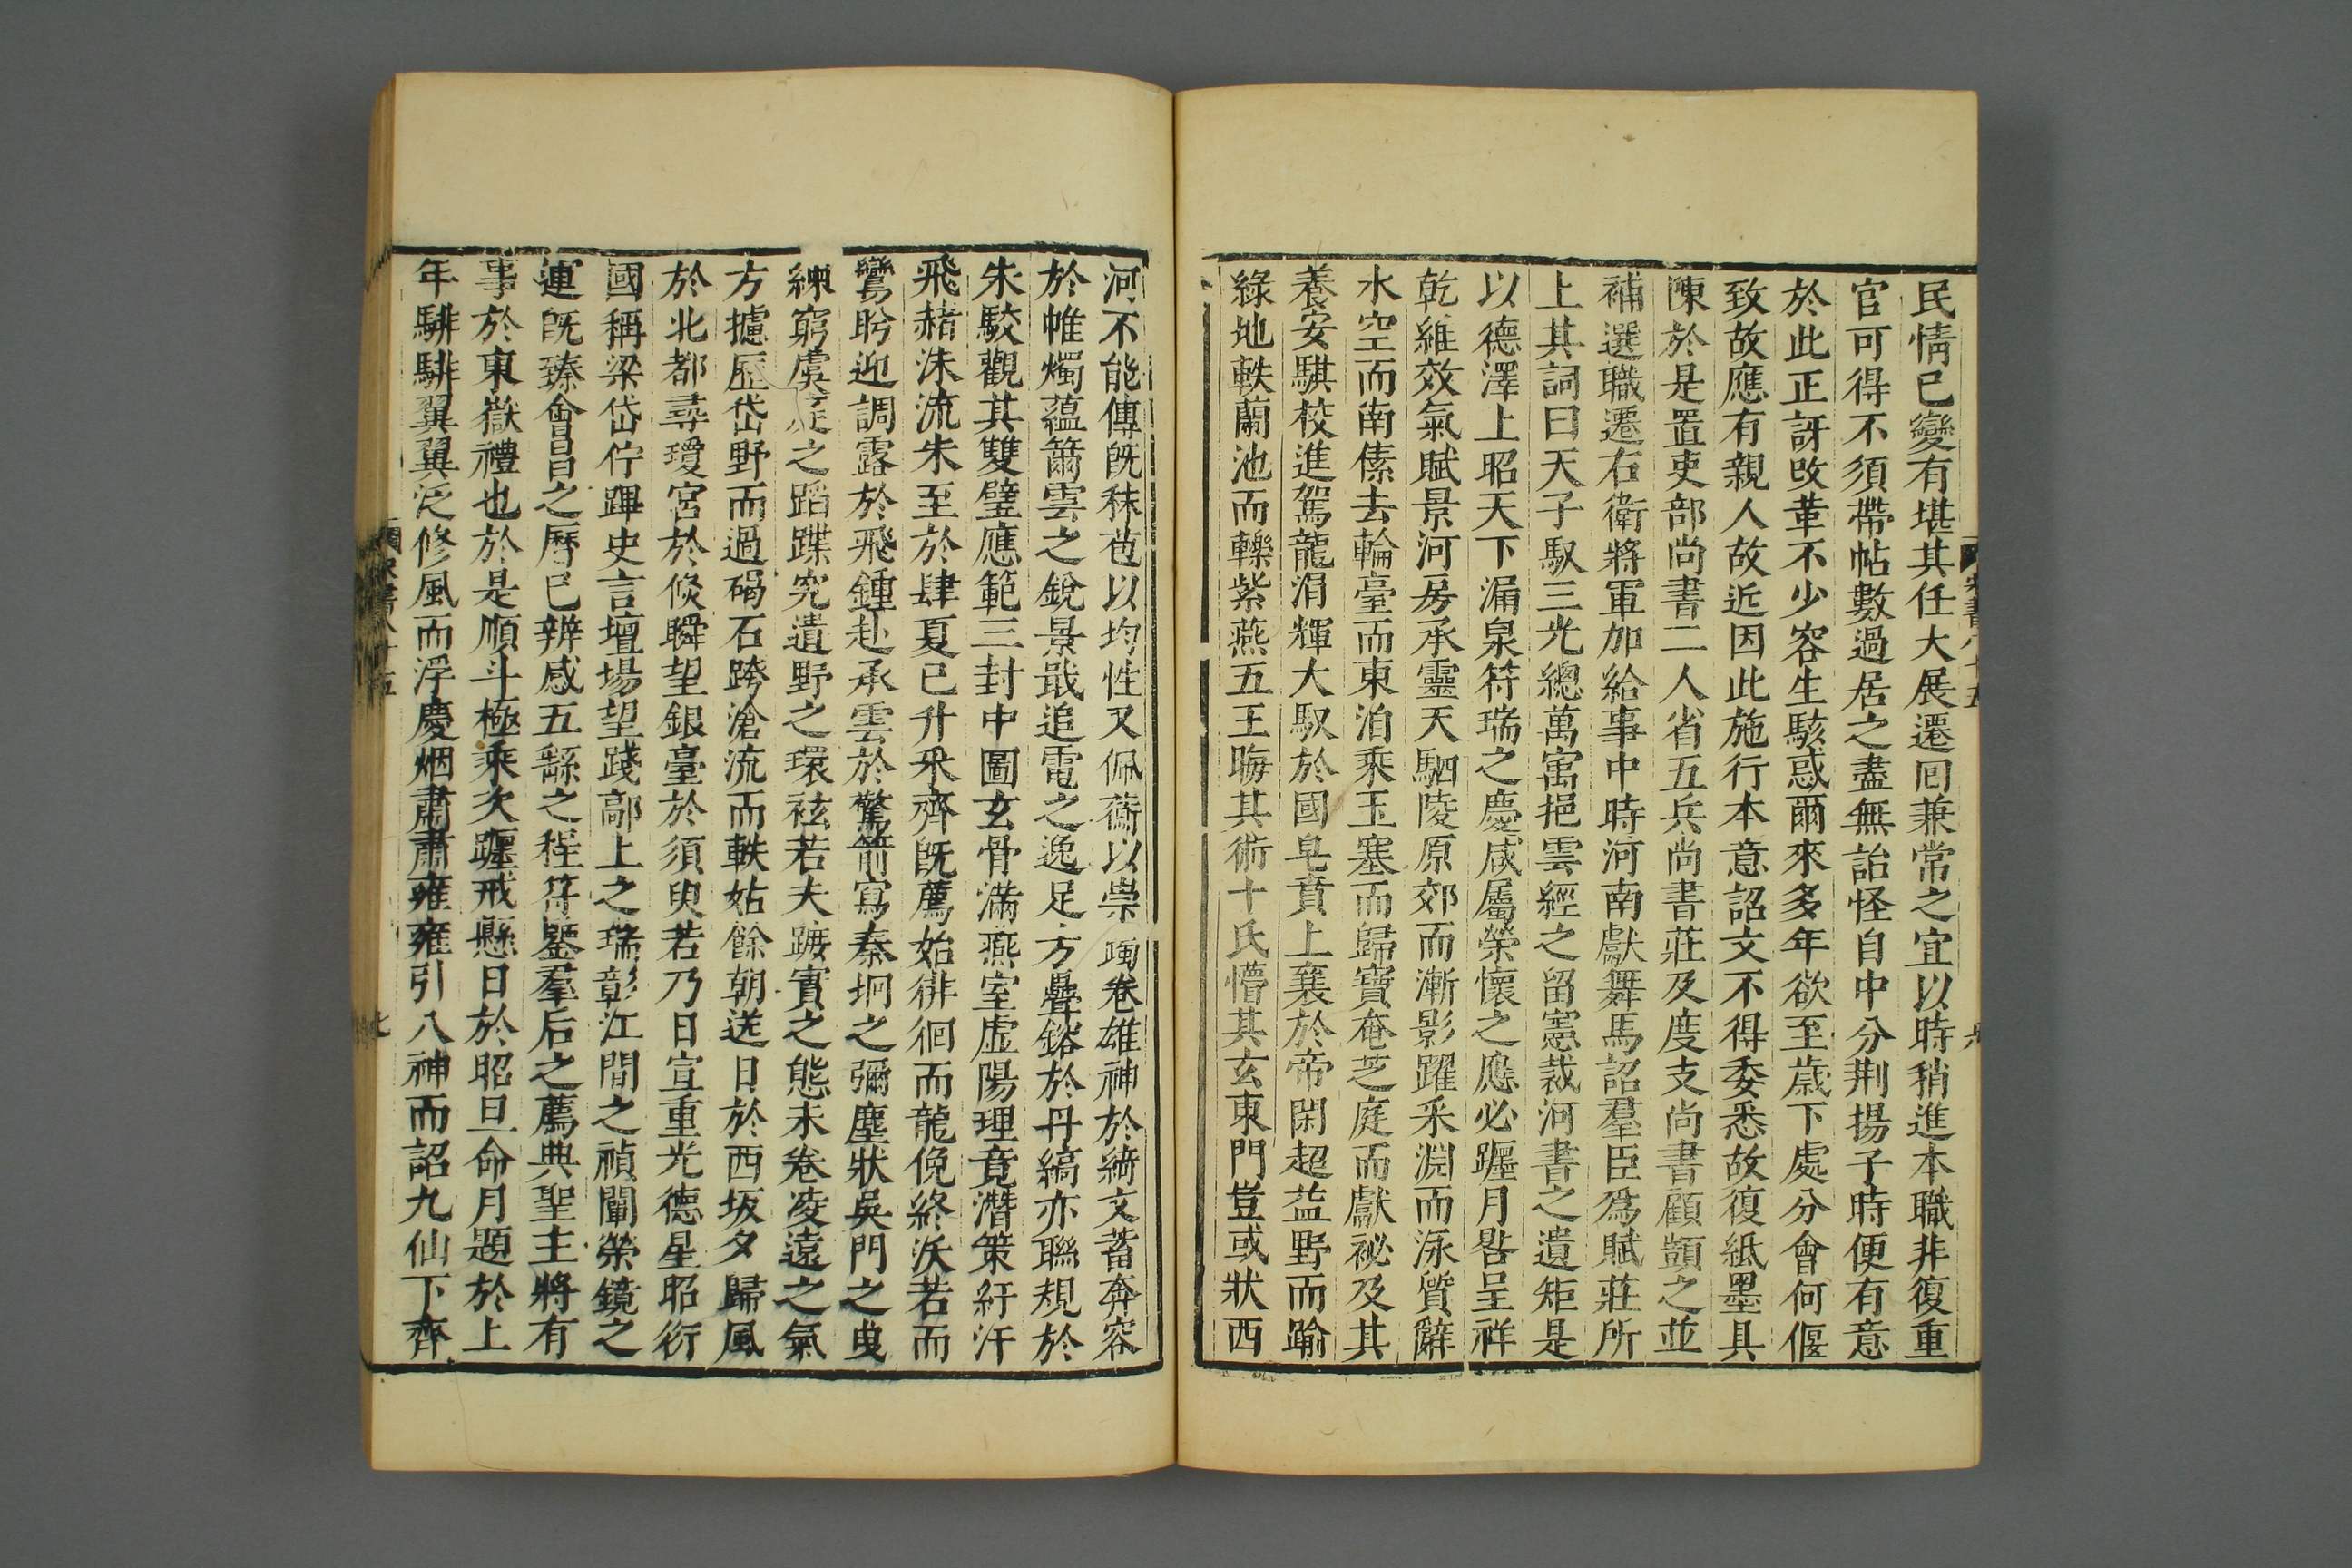 民情已變有堪其任大展遷回兼常之宜以時稍進本職非復重
官可得不須帶帖數過居之盡無詒怪自中分荆揚子時便有意
於此正訝改革不少容生駭惑爾來多年欲至歲下處分會何偃
致故應有親人故近因此施行本意詔文不得委悉故復紙墨具
陳於是置吏部尚書二人省五兵尚書莊及度支尚書顧顗之並
補選職遷右衛將軍加給事中時河南獻舞馬詔羣臣爲賦莊所
上其詞曰天子馭三光總萬寓挹雲經之留憲裁河書之遺矩是
以德澤上昭天下漏泉符瑞之慶咸屬榮懷之應必躔月晷呈祥
乾維效氣賦景河房承靈天駟陵原郊而漸影躍采淵而泳質辭
水空而南傃去輪臺而東洎乘玉塞而歸寶奄芝庭而獻祕及其
養安騏校進駕龍涓輝大馭於國皂賁上襄於帝閑超益野而踰
綠地軼蘭池而轢紫燕五王晦其術十氏懵其玄東門豈或狀西
河不能傳旣秣芭以均性又佩蘅以崇 躅卷雄神於綺文蓄奔容
於帷燭蘊籋雲之銳景戢追電之逸足方疊鎔於丹縞亦聯規於
朱駮觀其雙璧應範三封中圖玄骨滿燕室虛陽理竟潛策紆汗
飛赭沬流朱至於肆夏已升采齊旣薦始徘徊而龍俛終沃若而
鸞盻迎調露於飛鍾赴承雲於驚箭寫秦坰之彌塵狀吳門之曳
練窮虞庭之蹈蹀究遺野之環袨若夫蹍實之態未卷凌遠之氣
方攄歷岱野而過碣石跨滄流而軼姑餘朝送日於西坂夕歸風
於北都尋瓊宮於倏瞬望銀臺於須臾若乃日宣重光德星昭衍
國稱梁岱佇蹕史言壇場望踐鄗上之瑞彰江間之禎闡榮鏡之
運旣臻會昌之曆已辨感五繇之程符鑒羣后之薦典聖主將有
事於東嶽禮也於是順斗極乘次躔戒懸日於昭旦命月題於上
年騑騑翼翼泛修風而浮慶烟肅肅雍雍引八神而詔九仙下齊